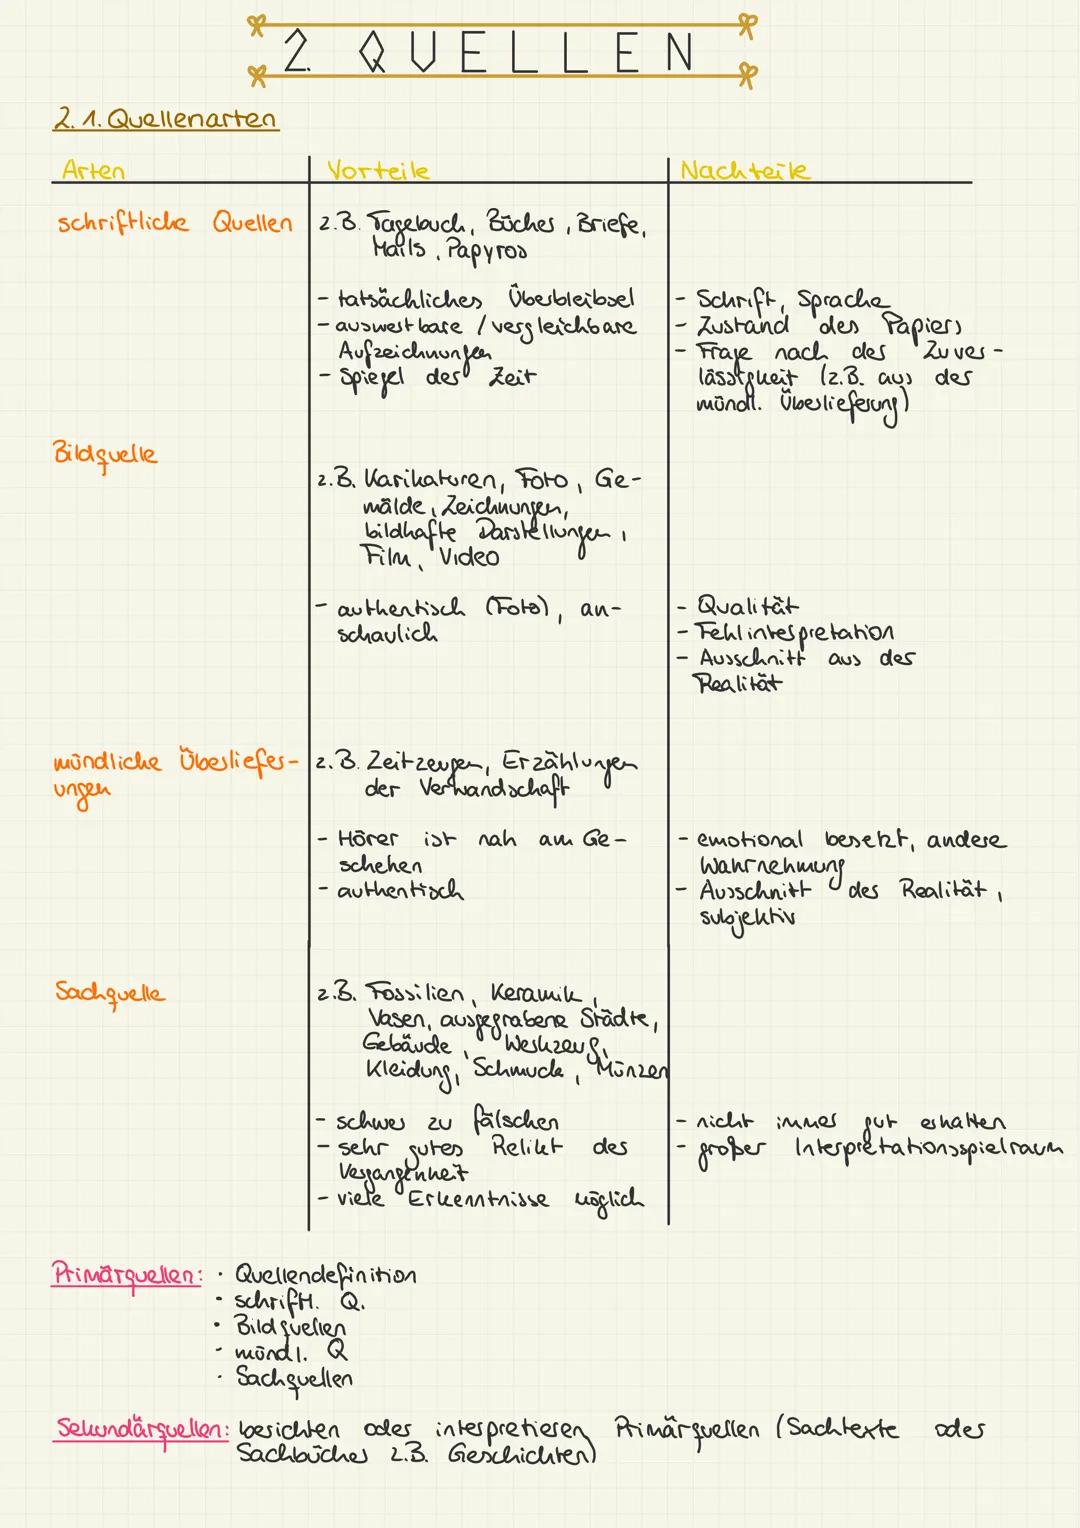 2. QUELLEN
2.1. Quellenarten
Arten Vorteile Nachteile
schriftliche Quellen z.B. Tagebuch, Bücher, Briefe,
Mails, Papyros
- tatsächliches Überbleibsel
- auswertbare / vergleichbare
Aufzeichnungen
- Spiegel der Zeit
- Schrift, Sprache
- Zustand des Papiers
- Frage nach der Zuver-
lässigkeit (z.B. aus der
mündl. Überlieferung)
Bildquelle
z.B. Karikaturen, Foto, Ge-
mälde, Zeichnungen,
bildhafte Darstellungen,
Film, Video
- authentisch (Foto), an-
schaulich
- Qualität
- Fehlinterpretation
- Ausschnitt aus der
Realität
mündliche Überliefer-
ungen
z.B. Zeitzeugen, Erzählungen
der Verwandschaft
- Hörer ist nah am Ge-
schehen
- authentisch
- emotional besetzt, andere
Wahrnehmung
- Ausschnitt der Realität,
subjektiv
Sachquelle
z.B. Fossilien, Keramik,
Vasen, ausgegrabene Städte,
Gebäude, Werkzeug,
Kleidung, Schmuck, Münzen
- schwer zu fälschen
- sehr gutes Relikt der
Vergangenheit
- viele Erkenntnisse möglich
- nicht immer gut erhalten
- großer Interpretationsspielraum
Primärquellen: · Quellendefinition
· schriftl. Q.
· Bildquellen
· mündl. Q
· Sachquellen
Sekundärquellen: berichten oder interpretieren Primärquellen (Sachtexte oder
Sachbücher z.B. Geschichten)